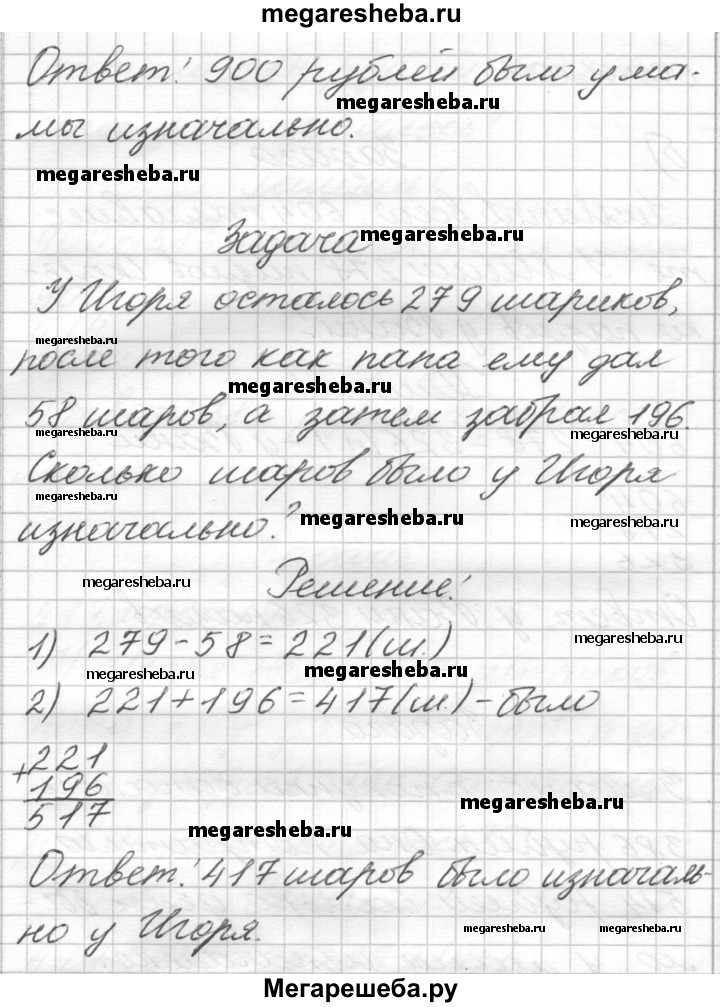 megaresheba.ru
Ответ! 900 рублей было у ма-
megaresheba.ru
мы изначально.
megaresheba.ru
Задача
megaresheba.ru
У Игоря осталось 279 шариков,
megaresheba.ru
после того как папа ему дал
megaresheba.ru
58 шаров, а затем забрал 196.
megaresheba.ru megaresheba.ru
Сколько шаров было у Игоря
megaresheba.ru
изначально?
megaresheba.ru megaresheba.ru
Решение!
megaresheba.ru
1) 279-58=221(ш.)
megaresheba.ru
megaresheba.ru megaresheba.ru
2) 221+196=417(ш.)-было
+221
196
517
megaresheba.ru
megaresheba.ru
Ответ! 417 шаров было изначаль-
но у Игоря.
megaresheba.ru megaresheba.ru
Мегарешеба.ру